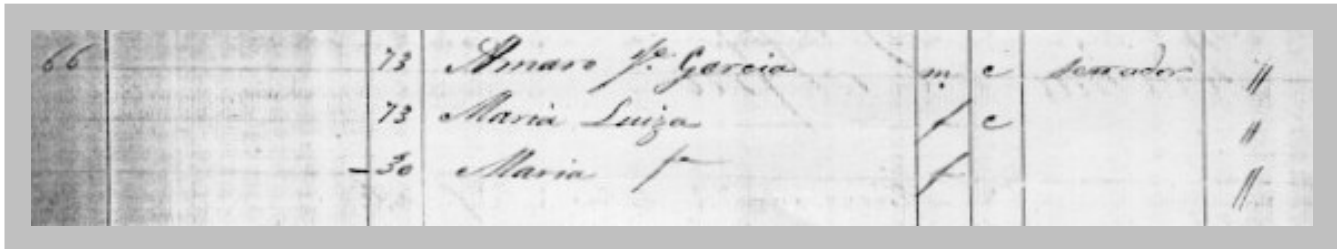 66 73 Amaro Je. Garcia m. c serrador "
73 Maria Luiza f c "
- 30 Maria fa f "